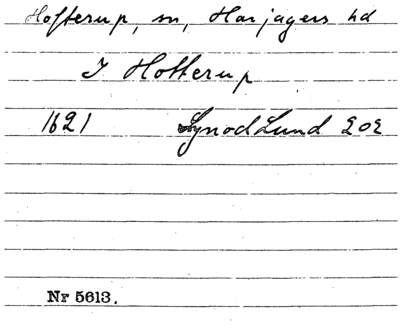 Hofterup, sn, Harjagers hd
I Hotterup
1621 Synod Lund 202
Nr 5613.